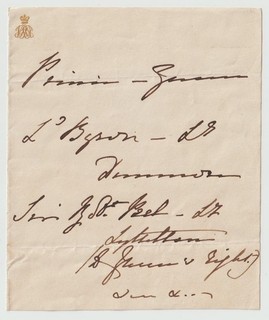 Prince — Queen
Ld Byron — Ly
Dunmore
Sir Robt Peel — Ly
Lyttelton
(to Queen's right)